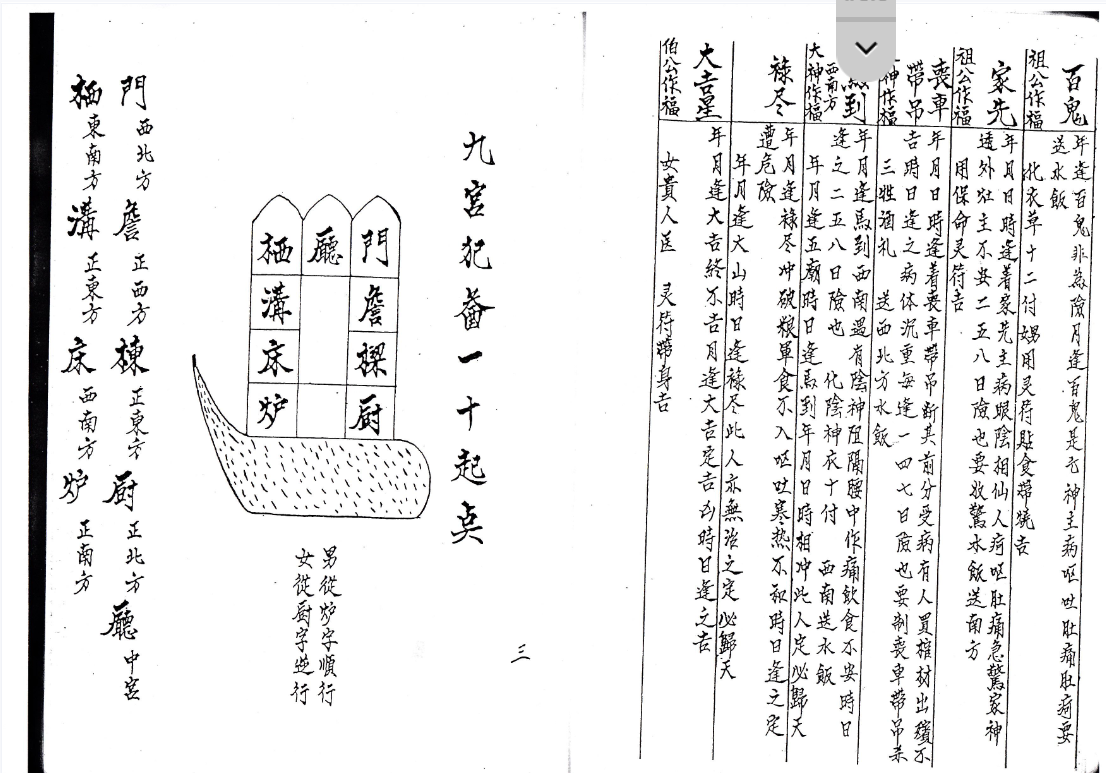 百鬼
祖公作福
年逢百鬼非為險月逢百鬼是七神主病嘔吐肚痛肚疴要
送水飯
化衣草十二付 用灵符貼食帶燒吉
家先
祖公作福
年月日時逢着家先主病眼陰相仙人疴嘔肚痛急驚家神
透外灶主不安二五八日險也要收驚水飯送南方
用保命灵符吉
喪車
帶吊
神作福
年月日時逢着喪車帶吊断其前分受病有人買棺材出殯不
吉時日逢之病体沉重每逢一四七日險也要制喪車帶吊
三牲酒礼 送西北方水飯
到
西南方
大神作福
年月逢馬到西南遇有陰神阻隔腰中作痛飲食不安時日
逢之二五八日險也 化陰神衣十付 西南送水飯
年月逢五廟時日逢馬到年月日時相冲此人定必歸天
祿尽
年月逢祿尽冲破粮軍食不入嘔吐寒热不和時日逢之定
遭危險
年月逢大山時日逢祿尽此人亦無治之定必歸天
大吉星
伯公作福
年月逢大吉終不吉月逢大吉定吉凶時日逢之吉
女貴人 灵符帶身吉
九宮犯 一十起
三
門
詹
樑
厨
廳
栖
溝
床
炉
男從炉字順行
女從厨字逆行
門西北方 詹正西方 棟正東方 厨正北方 廳中宮
栖東南方 溝正東方 床西南方 炉正南方